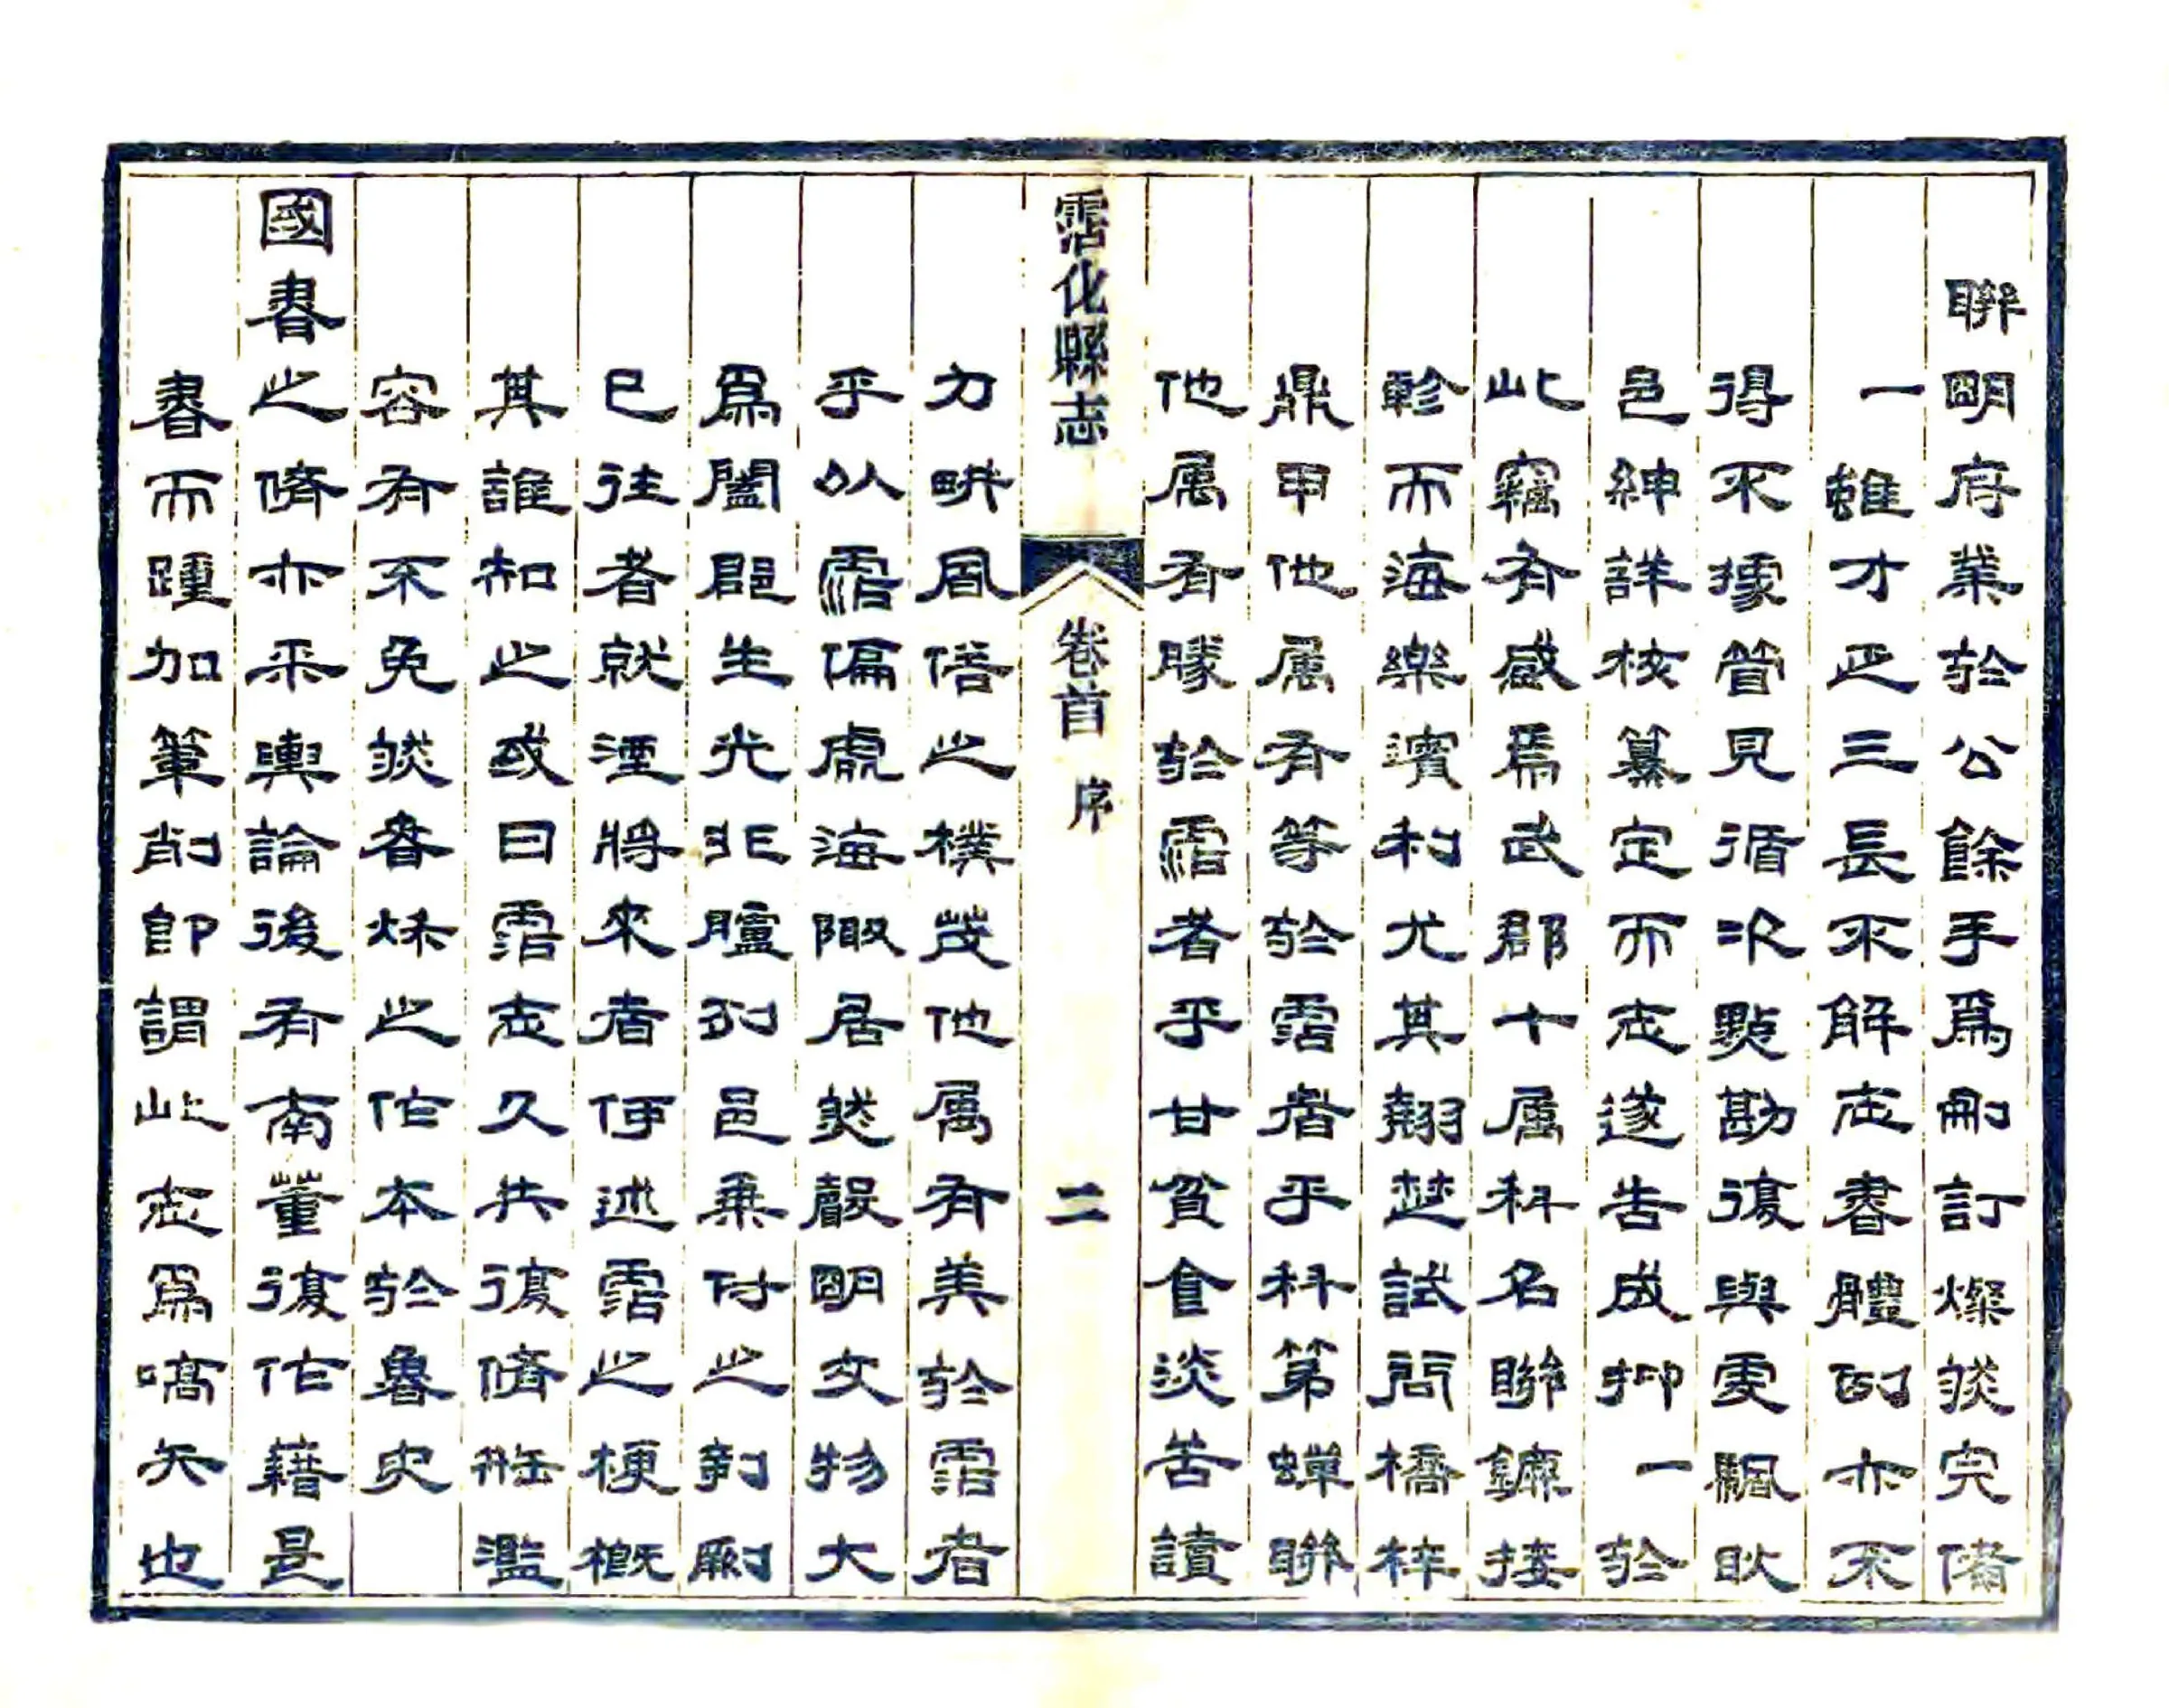 聯明府業於公餘手爲刪訂燦然完備
一雖才乏三長不解志書體例亦不
得不據管見循次點勘復與雯颿耿
邑紳詳校纂定而志遂告成抑一於
此竊有感焉武郡十属科名聯鑣接
軫而海樂濱利尤其翹楚試問橋梓
鼎甲他属有等於霑者乎科第蟬聯
他属有勝於霑者乎甘貧食淡苦讀
霑化縣志 卷首 序 二
力畊風俗之樸茂他属有美於霑者
乎以霑偏處海陬居然聲明文物大
爲闔郡生光非臚列邑乘付之剞劂
已往者就湮將來者何述霑之梗概
其誰知之或曰霑志久失復脩濫
容有不免然春秌之作本於魯史
國書之脩亦采輿論後有南董復作藉是
書而踵加筆削即謂此志爲嚆矢也